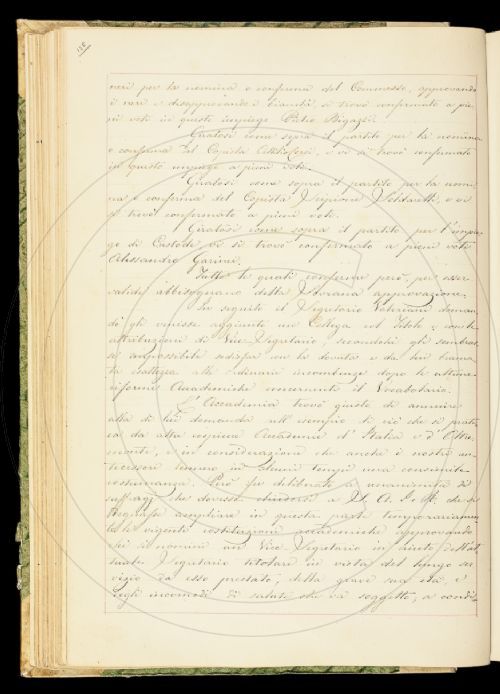 126
neri per la nomina o conferma del Commesso, approvando
i neri e disapprovando i bianchi, si trovò confermato a pie-
ni voti in questo impiego Pietro Bigazzi.
Giratosi come sopra il partito per la nomina
o conferma del Copista, vi si trovò confermato
in questo impiego a pieni voti.
Giratosi come sopra il partito per la nomi-
na o conferma del Copista, e vi
si trovò confermato a pieni voti.
Giratosi come sopra il partito per l'impie-
go di Custode vi si trovò confermato a pieni voti
Alessandro Garinei.
Tutte le quali conferme però per esser
valide abbisognano della Sovrana approvazione.
In seguito il Segretario Valeriani doman-
dò gli venisse aggiunto un Collega col titolo e con le
attribuzioni di Vice Segretario, secondochè gli sembras-
se impossibile sodisfar con la dovuta e da lui brama-
ta esattezza alle ordinarie incombenze dopo le ultime
riforme Accademiche concernenti il Vocabolario.
L'Accademia trovò giusto di annuire
alla di lui domanda sull'esempio di ciò che si prati-
ca da altre cospicue Accademie d'Italia e d'Oltre-
monte, e in considerazione che anche i nostri an-
tecessori tennero in alcuni tempi una consimile
costumanza. Però fu deliberato a unanimità di
suffragj che dovesse chiedersi a S. A. I. e R. che si
degnasse ampliare in questa parte temporariamen-
te le vigenti costituzioni accademiche approvando
che si nomini un Vice Segretario in aiuto dell'at-
tuale Segretario titolare in vista del lungo ser-
vizio da esso prestato, della grave sua età, e
degli incomodi di salute che va soggetto, a condi-